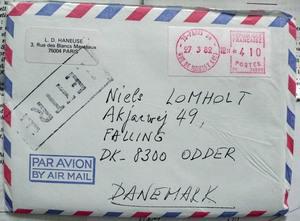 L. D. HANEUSE
3, Rue des Blancs Manteaux
75004 PARIS
LETTRE
27 3 82
4,10
POSTES
Niels LOMHOLT
49,
FALLING
DK-8300 ODDER
DANEMARK
PAR AVION
BY AIR MAIL